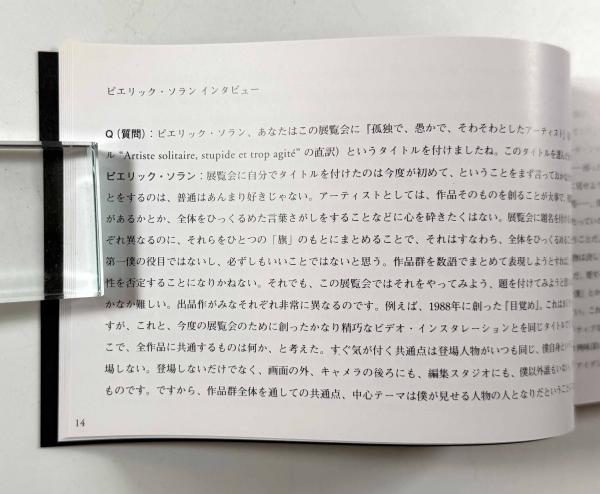 ピエリック・ソラン インタビュー
Q（質問）：ピエリック・ソラン、あなたはこの展覧会に『孤独で、愚かで、そわそわとしたアーティスト』
ル “Artiste solitaire, stupide et trop agité” の直訳）というタイトルを付けましたね。このタイトルを選んだ
ピエリック・ソラン：展覧会に自分でタイトルを付けたのは今度が初めて、ということをまず言っておかな
とをするのは、普通はあんまり好きじゃない。アーティストとしては、作品そのものを創ることが大事で、
があるかとか、全体をひっくるめた言葉さがしをすることなどに心を砕きたくはない。展覧会に題名を付け
ぞれ異なるのに、それらをひとつの「旗」のもとにまとめることで、それはすなわち、全体をひっくるめ
第一僕の役目ではないし、必ずしもいいことではないと思う。作品群を数語でまとめて表現しようとすれば、
性を否定することになりかねない。それでも、この展覧会ではそれをやってみよう、題を付けてみようと思
かなか難しい。出品作がみなそれぞれ非常に異なるのです。例えば、1988年に創った『目覚め』。これは
すが、これと、今度の展覧会のために創ったかなり精巧なビデオ・インスタレーションとを同じタイトルで
こで、全作品に共通するものは何か、と考えた。すぐ気が付く共通点は登場人物がいつも同じ、僕自身という
場しない。登場しないだけでなく、画面の外、キャメラの後ろにも、編集スタジオにも、僕以外誰もいない
ものです。ですから、作品群全体を通しての共通点、中心テーマは僕が見せる人物の人となりだということ
14